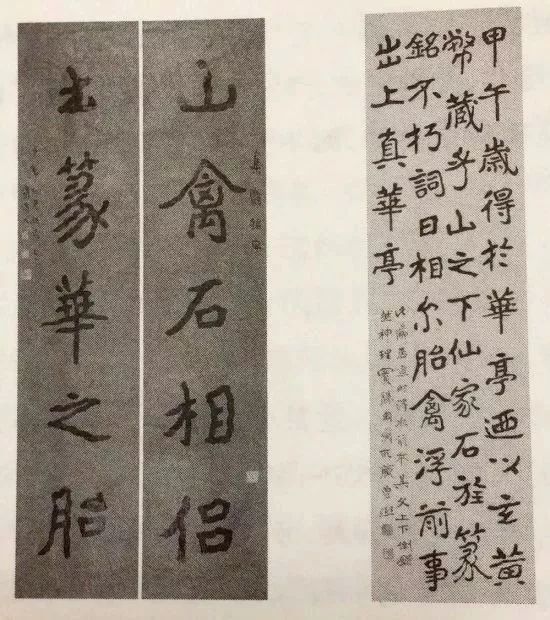 山禽石相侶
集鶴銘字
出篆華之胎
甲午歲得於華亭迺以玄黃
幣藏乎山之下仙家石旌篆
銘不朽詞曰相尔胎禽浮前事
出上真華亭